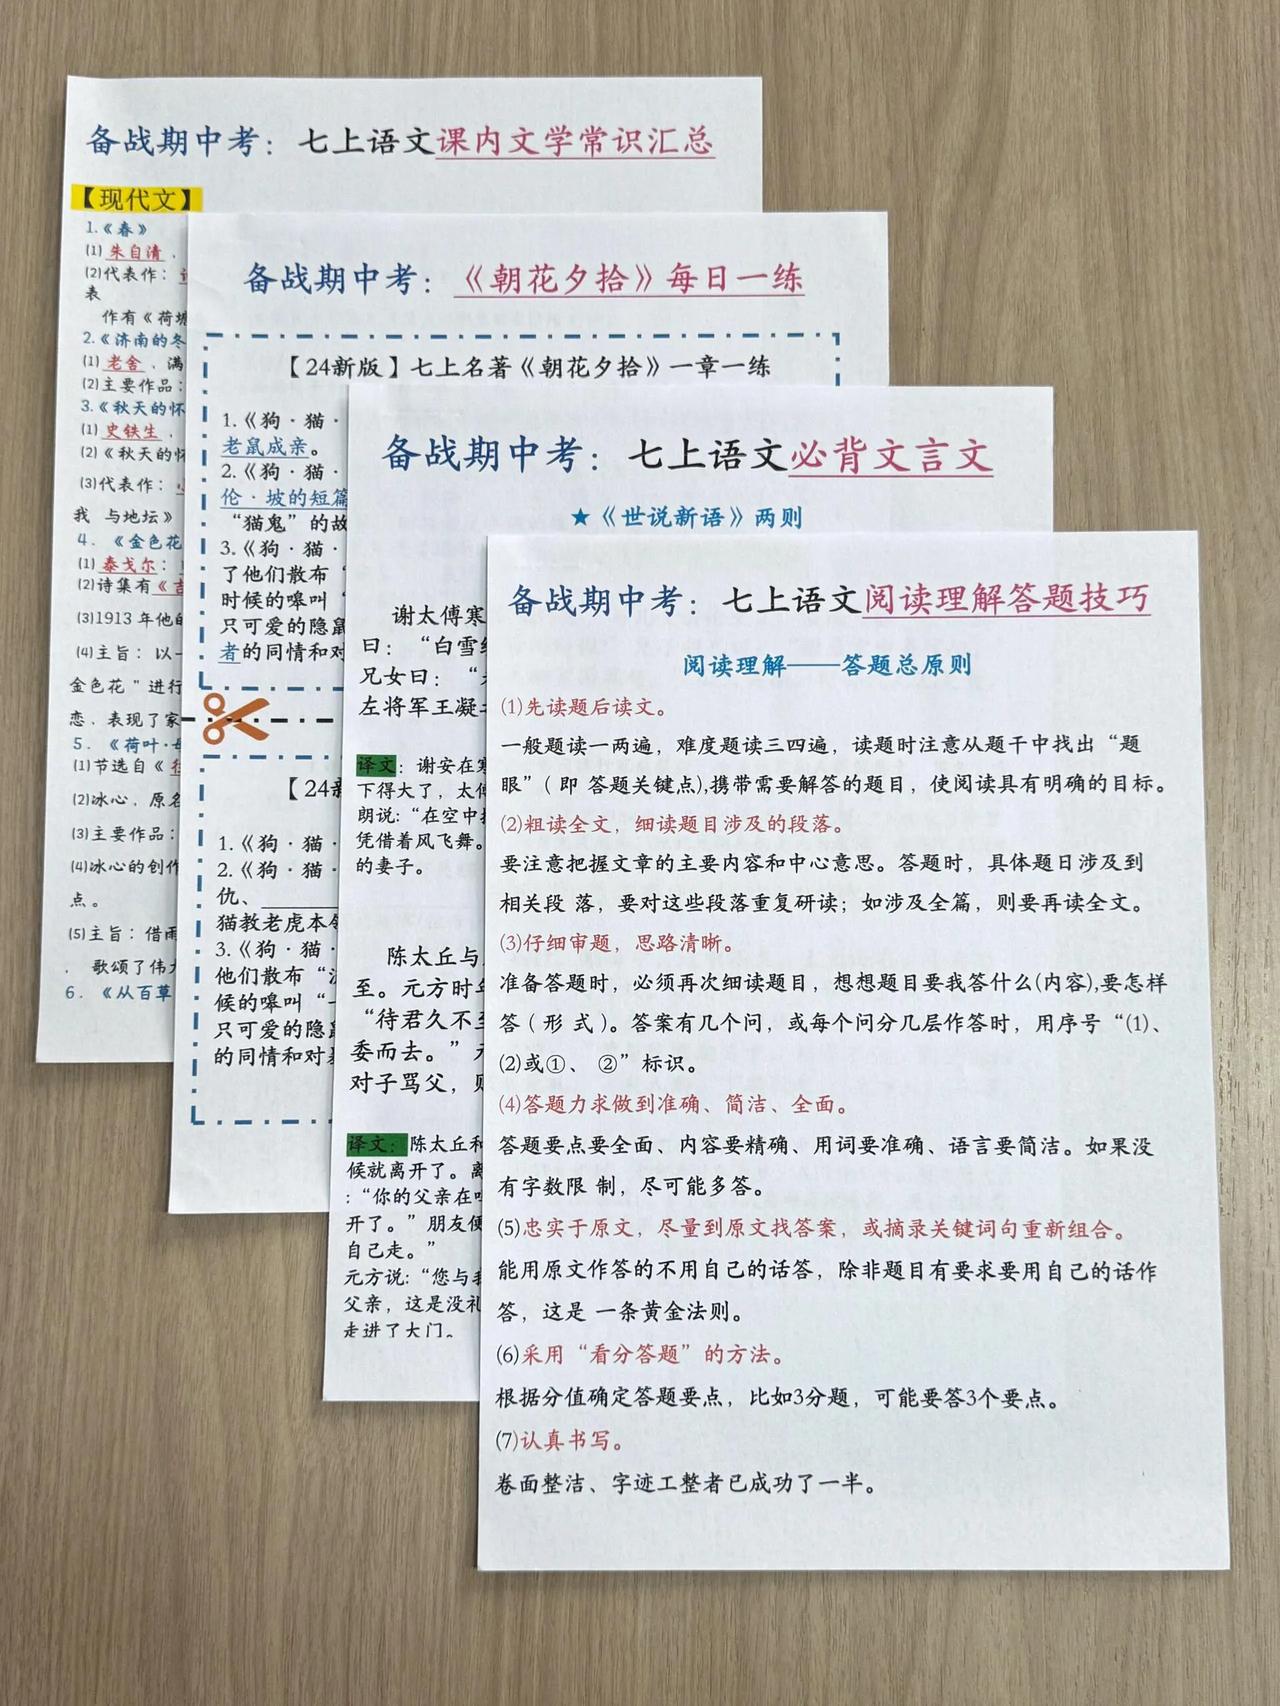 备战期中考：七上语文课内文学常识汇总
【现代文】
1.《春》
(1)朱自清
(2)代表作：
表
作有《荷塘
2.《济南的冬
(1)老舍，满
(2)主要作品：
3.《秋天的怀
(1)史铁生，
(2)《秋天的怀
(3)代表作：
我 与地坛》
4．《金色花
(1)泰戈尔：
(2)诗集有《吉
(3)1913 年他的
(4)主旨：以一
金色花"进行
恋．表现了家
5．《荷叶·母
(1)节选自《
(2)冰心，原名
(3)主要作品：
(4)冰心的创作
点。
(5)主旨：借雨
．歌颂了伟大
6．《从百草
备战期中考：《朝花夕拾》每日一练
【24新版】七上名著《朝花夕拾》一章一练
1.《狗·猫·
老鼠成亲。
2.《狗·猫·
伦·坡的短篇
“猫鬼”的故
3.《狗·猫·
了他们散布“
时候的嗥叫“
只可爱的隐鼠
者的同情和对
【24新
1.《狗·猫·
2.《狗·猫·
仇、
猫教老虎本领
3.《狗·猫·
他们散布“
候的嗥叫“
只可爱的隐鼠
的同情和对暴
备战期中考：七上语文必背文言文
★《世说新语》两则
谢太傅寒
曰：“白雪纷
兄女曰：“未
左将军王凝之
译文：谢安在寒
下得大了，太傅
朗说：“在空中撒
凭借着风飞舞。
的妻子。
陈太丘与
至。元方时年
“待君久不至
委而去。”元
对子骂父，则
译文：陈太丘和
候就离开了。离
：“你的父亲在吗
开了。”朋友便
自己走。”
元方说：“您与我
父亲，这是没礼
走进了大门。
备战期中考：七上语文阅读理解答题技巧
阅读理解——答题总原则
(1)先读题后读文。
一般题读一两遍，难度题读三四遍，读题时注意从题干中找出“题
眼”( 即 答题关键点),携带需要解答的题目，使阅读具有明确的目标。
(2)粗读全文，细读题目涉及的段落。
要注意把握文章的主要内容和中心意思。答题时，具体题日涉及到
相关段 落，要对这些段落重复研读；如涉及全篇，则要再读全文。
(3)仔细审题，思路清晰。
准备答题时，必须再次细读题目，想想题目要我答什么(内容),要怎样
答 ( 形 式 )。答案有几个问，或每个问分几层作答时，用序号“(1)、
(2)或①、 ②”标识。
(4)答题力求做到准确、简洁、全面。
答题要点要全面、内容要精确、用词要准确、语言要简洁。如果没
有字数限 制，尽可能多答。
(5)忠实于原文，尽量到原文找答案，或摘录关键词句重新组合。
能用原文作答的不用自己的话答，除非题目有要求要用自己的话作
答，这是 一条黄金法则。
(6)采用“看分答题”的方法。
根据分值确定答题要点，比如3分题，可能要答3个要点。
(7)认真书写。
卷面整洁、字迹工整者已成功了一半。